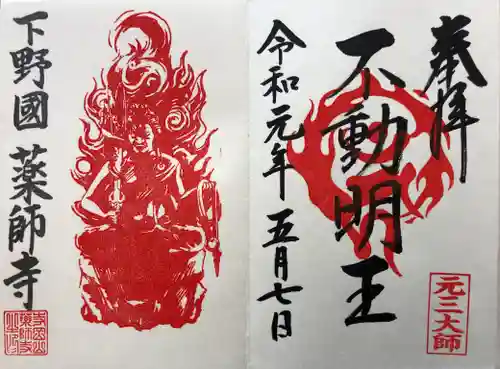 奉拝
不動明王
令和元年五月七日
元三大師
下野國薬師寺